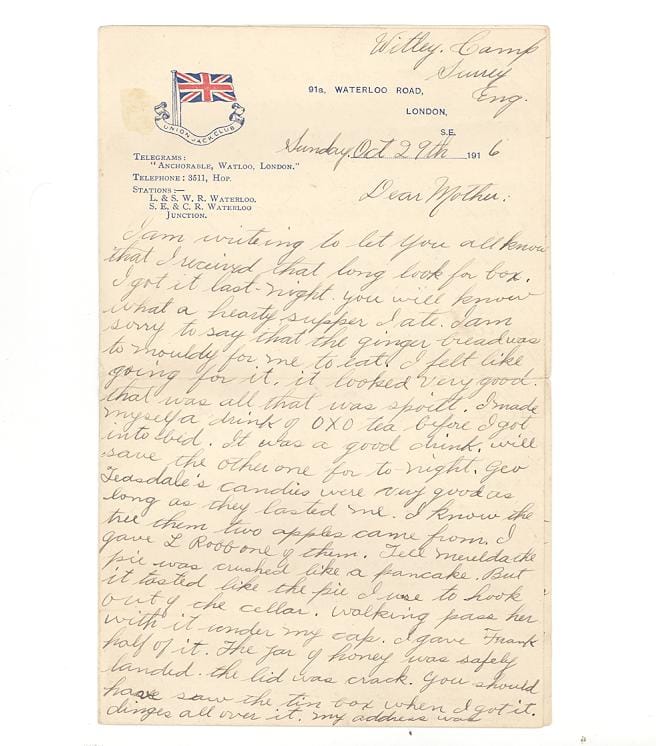 Witley. Camp
Surrey
Eng.
UNION JACK CLUB
91B, WATERLOO ROAD,
LONDON,
S.E.
Sunday Oct 29th 1916
TELEGRAMS:
"ANCHORABLE, WATLOO, LONDON."
TELEPHONE: 3511, HOP.
STATIONS:—
L. & S. W. R. WATERLOO.
S. E. & C. R. WATERLOO
JUNCTION.
Dear Mother:
I am writeing to let you all know
that I received that long look for box.
I got it last-night. you will know
what a hearty supper I ate. I am
sorry to say that the ginger bread was
to mouldy for me to eat. I felt like
going for it. it looked very good.
that was all that was spoilt. I made
myself a drink of OXO tea before I got
into bed. It was a good drink. will
save the other one for to-night. Geo
Teasdale's candies were very good as
long as they lasted me. I know the
tree them two apples came from. I
gave L Robb one of them. Tell Merelda the
pie was crushed like a pancake. But
it tasted like the pie I use to hook
out of the cellar. walking pass her
with it under my cap. I gave Frank
half of it. The jar of honey was safely
landed. the lid was crack. You should
have saw the tin box when I got it.
dinges all over it. my address was